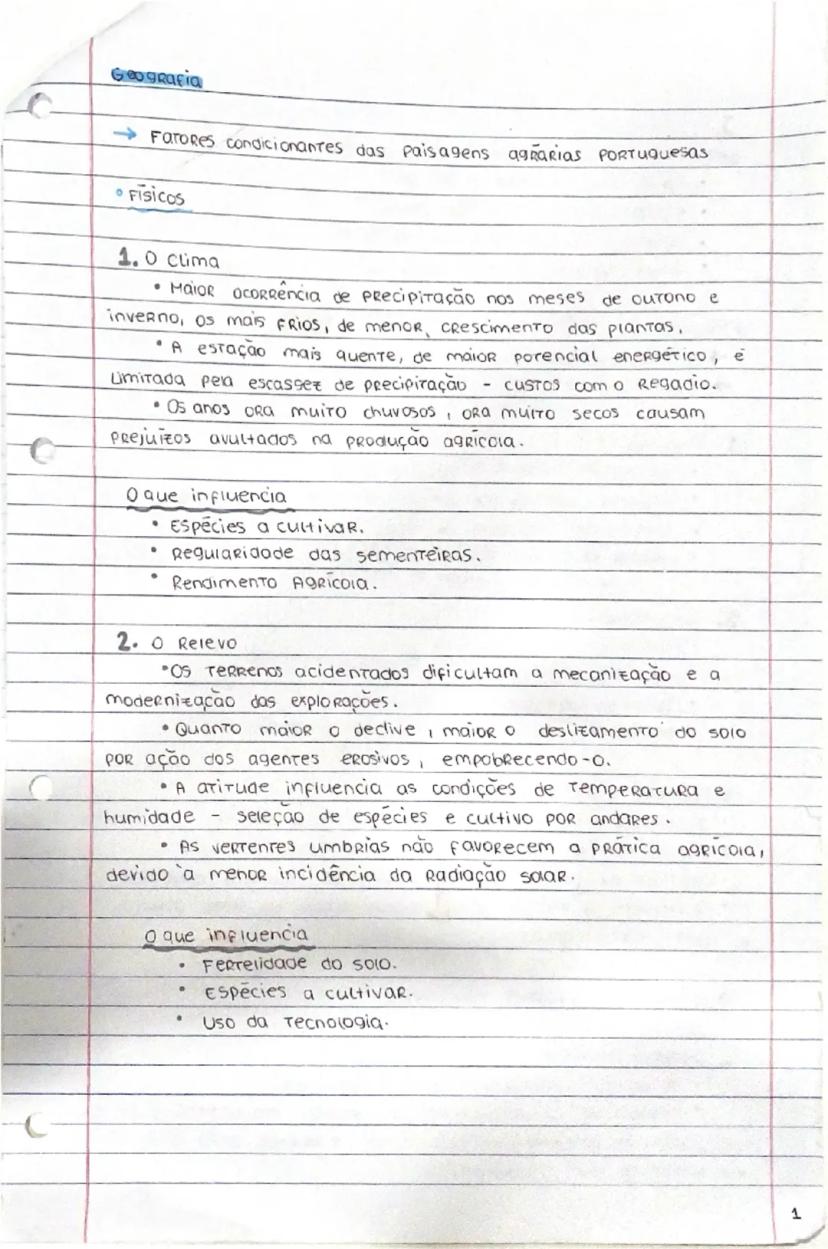 Geografia
→ Fatores condicionantes das paisagens agrárias portuguesas
• Físicos
1. O Clima
• Maior ocorrência de precipitação nos meses de outono e
inverno, os mais frios, de menor crescimento das plantas.
• A estação mais quente, de maior potencial energético, é
limitada pela escassez de precipitação - custos com o regadio.
• Os anos ora muito chuvosos, ora muito secos causam
prejuízos avultados na produção agrícola.
O que influencia
• Espécies a cultivar.
• Regularidade das sementeiras.
• Rendimento Agrícola.
2. O Relevo
• Os terrenos acidentados dificultam a mecanização e a
modernização das explorações.
• Quanto maior o declive, maior o deslizamento do solo
por ação dos agentes erosivos, empobrecendo-o.
• A atitude influencia as condições de temperatura e
humidade - seleção de espécies e cultivo por andares.
• As vertentes umbrias não favorecem a prática agrícola,
devido à menor incidência da radiação solar.
O que influencia
• Ferrelidade do solo.
• Espécies a cultivar.
• Uso da tecnologia.
1